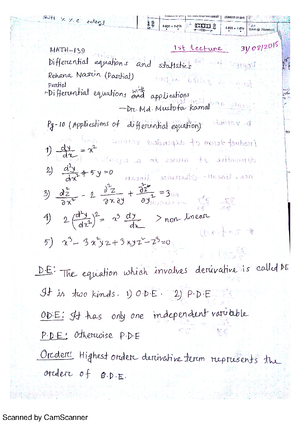 1st Lecture
MATH-139
Differential equations and statistics
Rehena Nasrin (Partial)
Partial
-Differential equations with and applications
—Dr. Md. Mustofa Kamal
Pg-10 (Applications of differential equation)
1) dy/dx = x²
2) d²y/dx² + 5y = 0
3) ∂²z/∂x² - 2 ∂²z/∂x∂y + ∂²z/∂y² = 3
4) 2(d²y/dx²)² = x³ dy/dx > non linear
5) x³ - 3x²yz + 3xyz² - z³ = 0
D.E: The equation which involves derivative is called DE
It is two kinds. 1) O.D.E. 2) P.D.E
ODE: It has only one independent variable
P.D.E: Otherwise P.D.E
Oreder: Highest order derivative term represents the
order of O.D.E.
Scanned by CamScanner